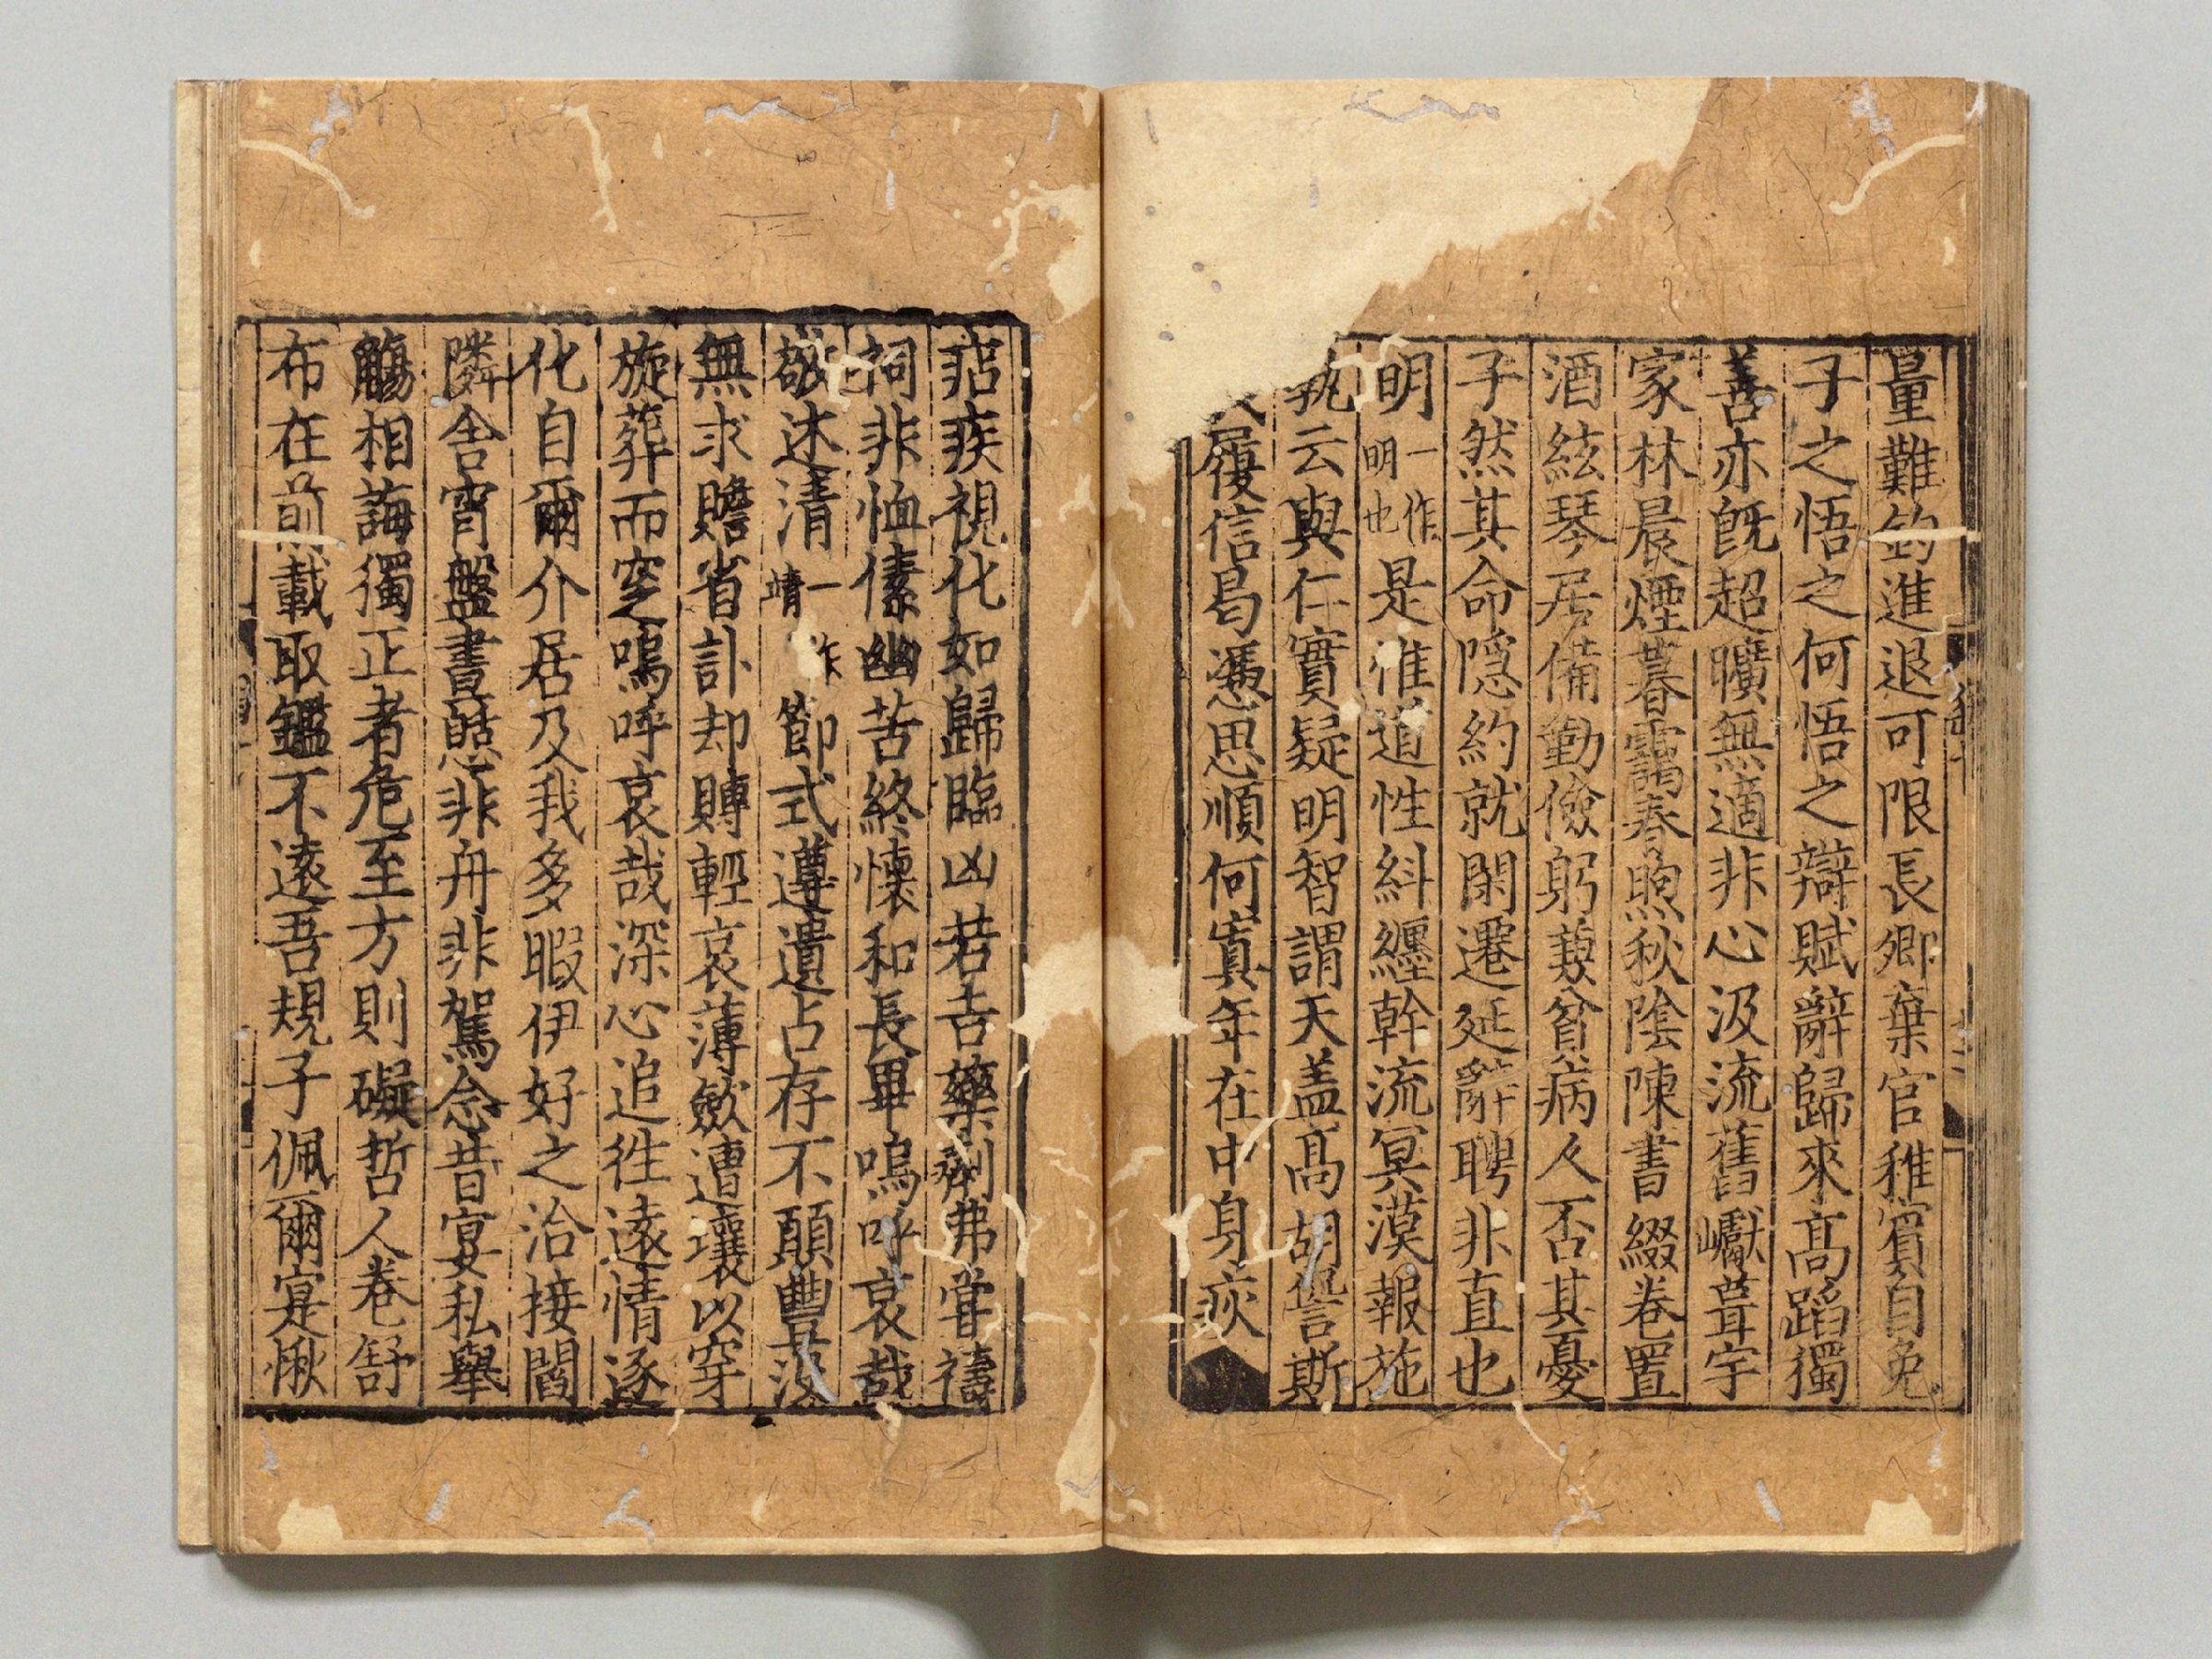 量難鈞進退可限長卿棄官稚賓自免
子之悟之何悟之辯賦辭歸來高蹈獨
善亦既超曠無適非心汲流舊巘葺宇
家林晨煙暮靄春煦秋陰陳書綴卷置
酒絃琴居備勤儉躬蒹貧病人否其憂
子然其命隱約就閑遷延辭聘非直也
明一作明也是惟道性糾纏幹流冥漠報施
孰云與仁實疑明智謂天盖高胡諐斯
履信曷憑思順何寘年在中身疢
痁疾視化如歸臨凶若吉藥劑弗嘗禱
祠非恤傃幽苦終懷和長畢嗚呼哀哉
敬述清一作靖節式遵遺占存不願豐没
無求贍省訃却賻輕哀薄斂遭壤以穿
旋葬而窆嗚呼哀哉深心追往遠情逐
化自爾介居及我多暇伊好之洽接閻
隣舍宵盤晝憩非舟非駕念昔宴私舉
觴相誨獨正者危至方則礙哲人卷舒
布在前載取鑑不遠吾規子佩爾寔愀